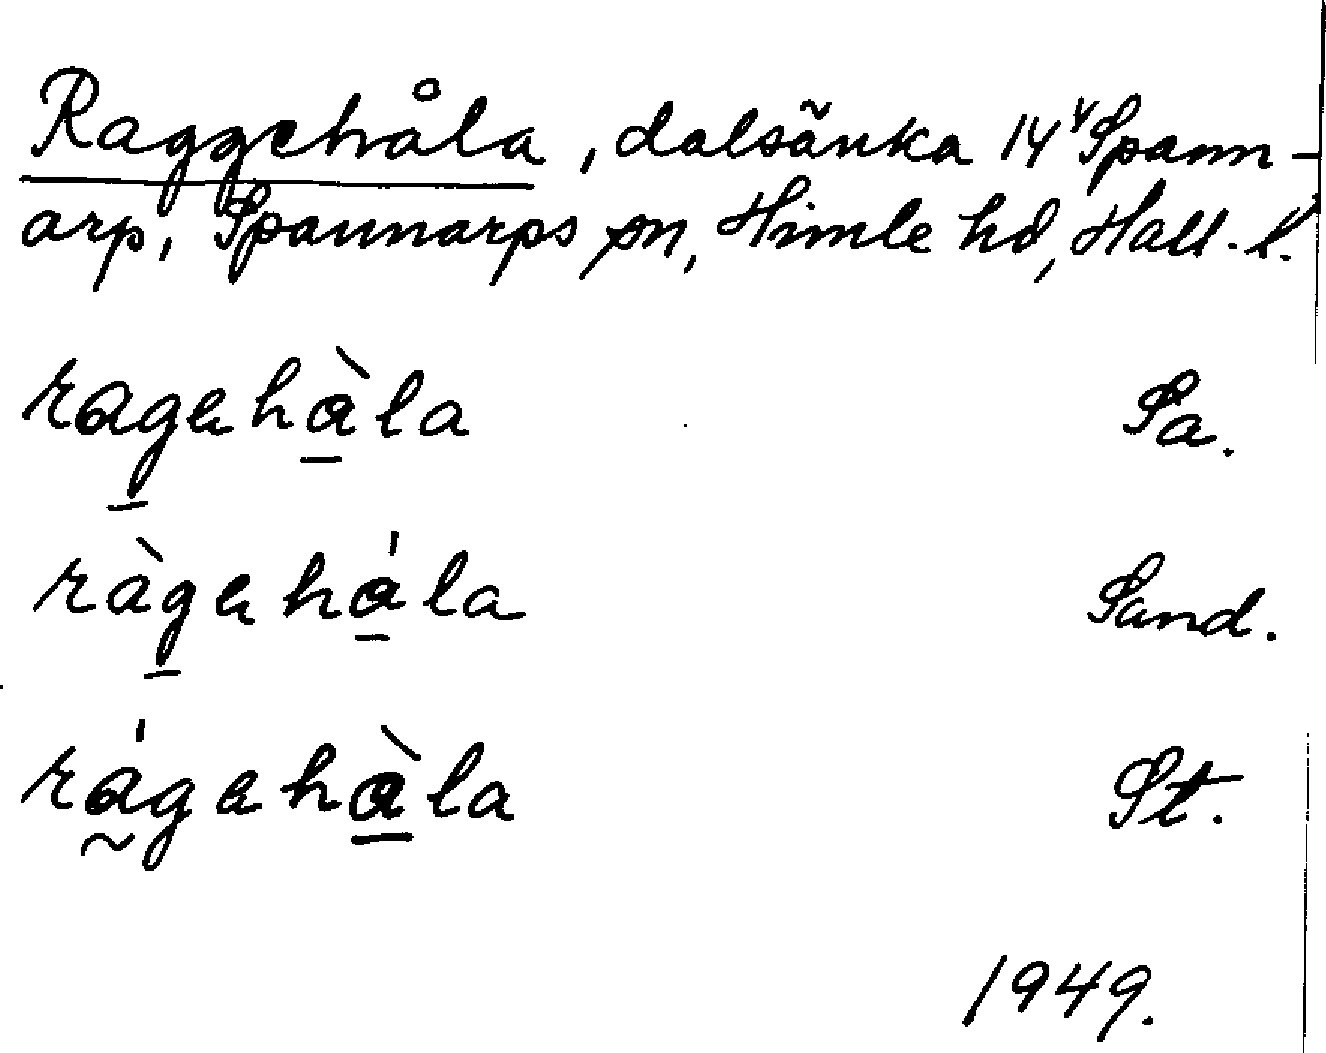 Raggehåla, dalsänka 14ᵛ Spann-
arp, Spannarps sn, Himle hd, Hall. l.
ragehàla Sa.
ràgehála Sand.
rágehàla St.
1949.